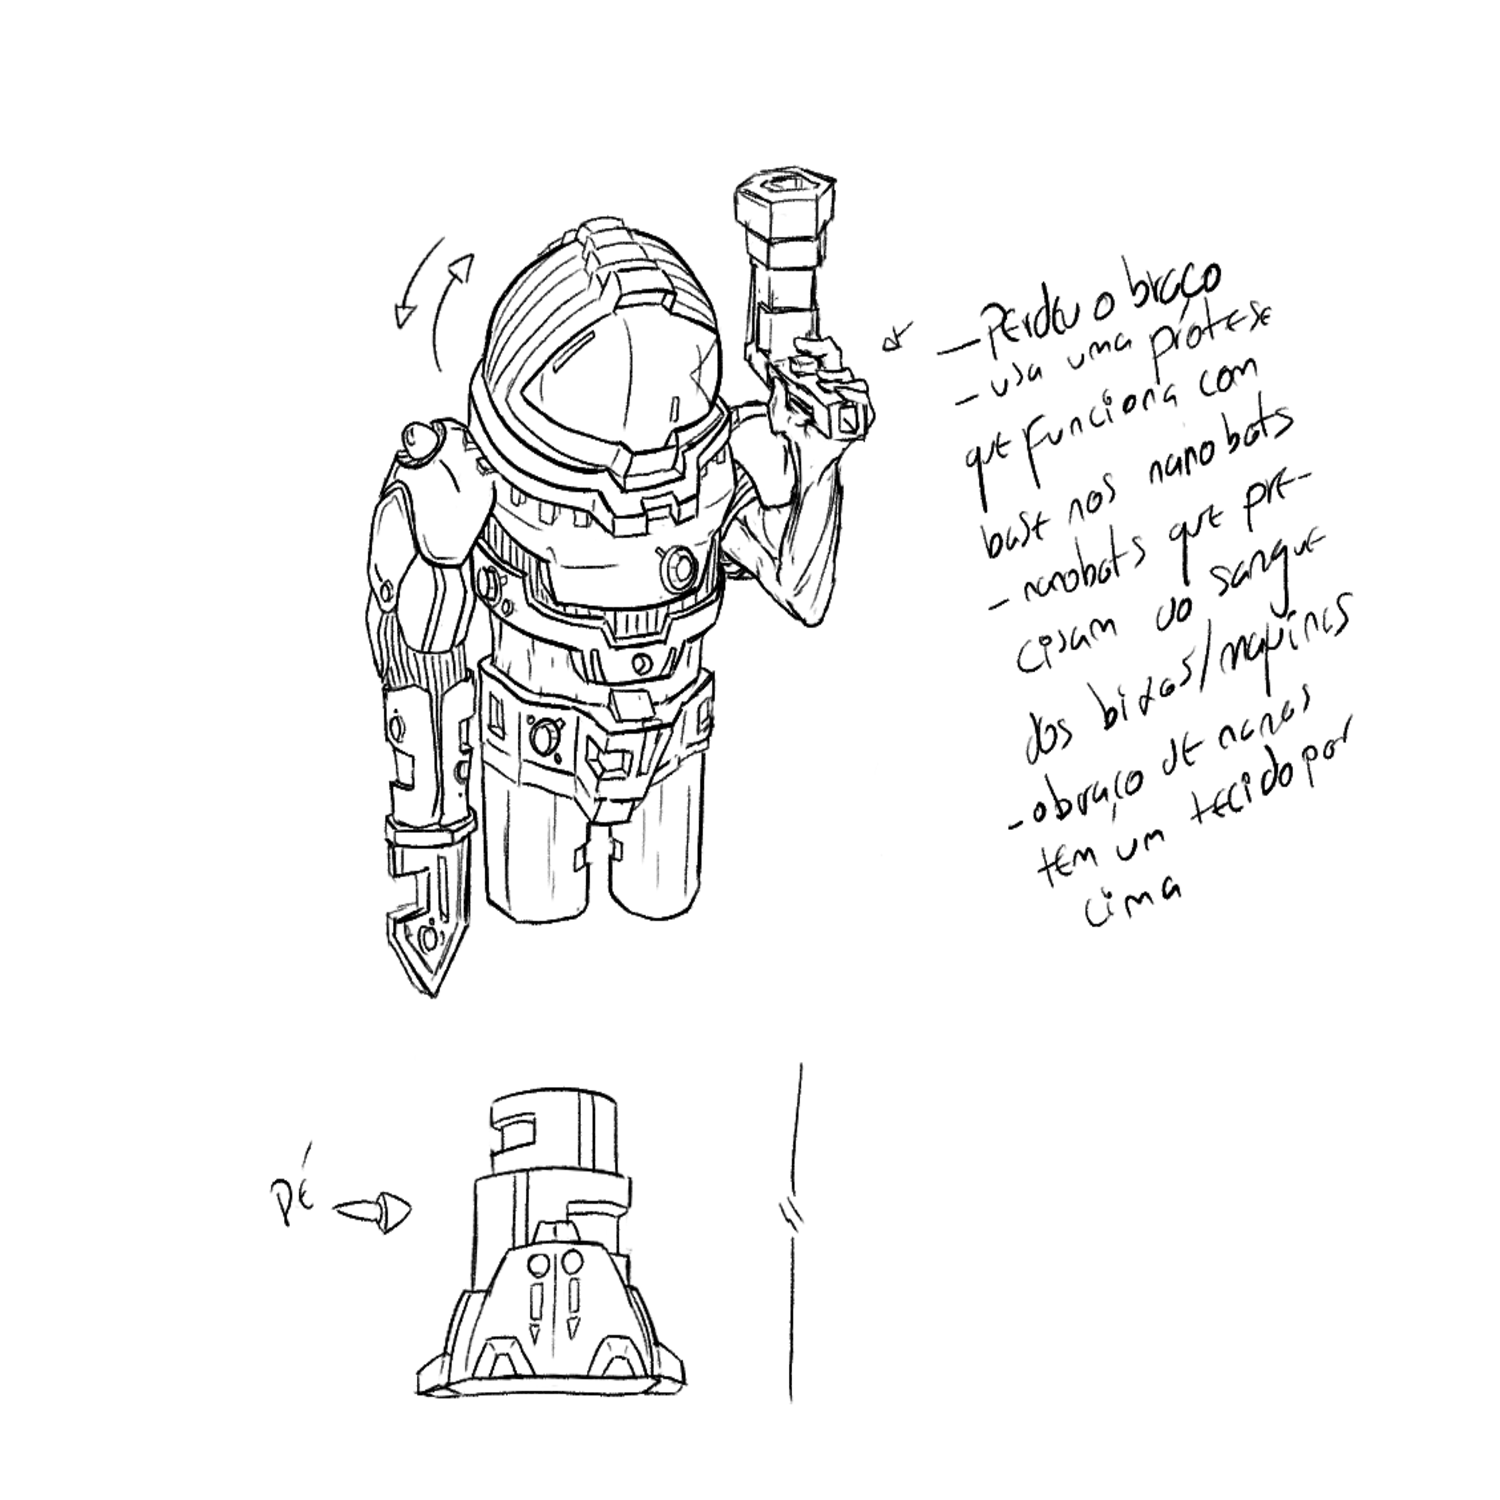 - Perdeu o braço
- usa uma prótese
que funciona com
base nos nanobots
- nanobots que pre-
cisam do sangue
dos bixos/maquinas
- o braço de nanos
tem um tecido por
cima
pé